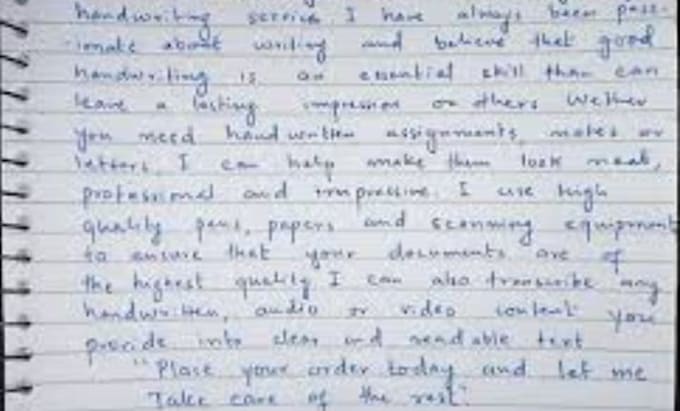 handwriting service. I have always been pass-
ionate about writing and believe that good
handwriting is an essential skill than can
leave a lasting impression on others Wether
you need handwritten assignments, notes or
letters, I can help make them look neat,
professional and impressive. I use high
quality pens, papers and scanning equipment
to ensure that your documents are of
the highest quality I can also transcribe any
handwritten, audio or video content you
provide into clear and readable text
"Place your order today and let me
Take care of the rest".